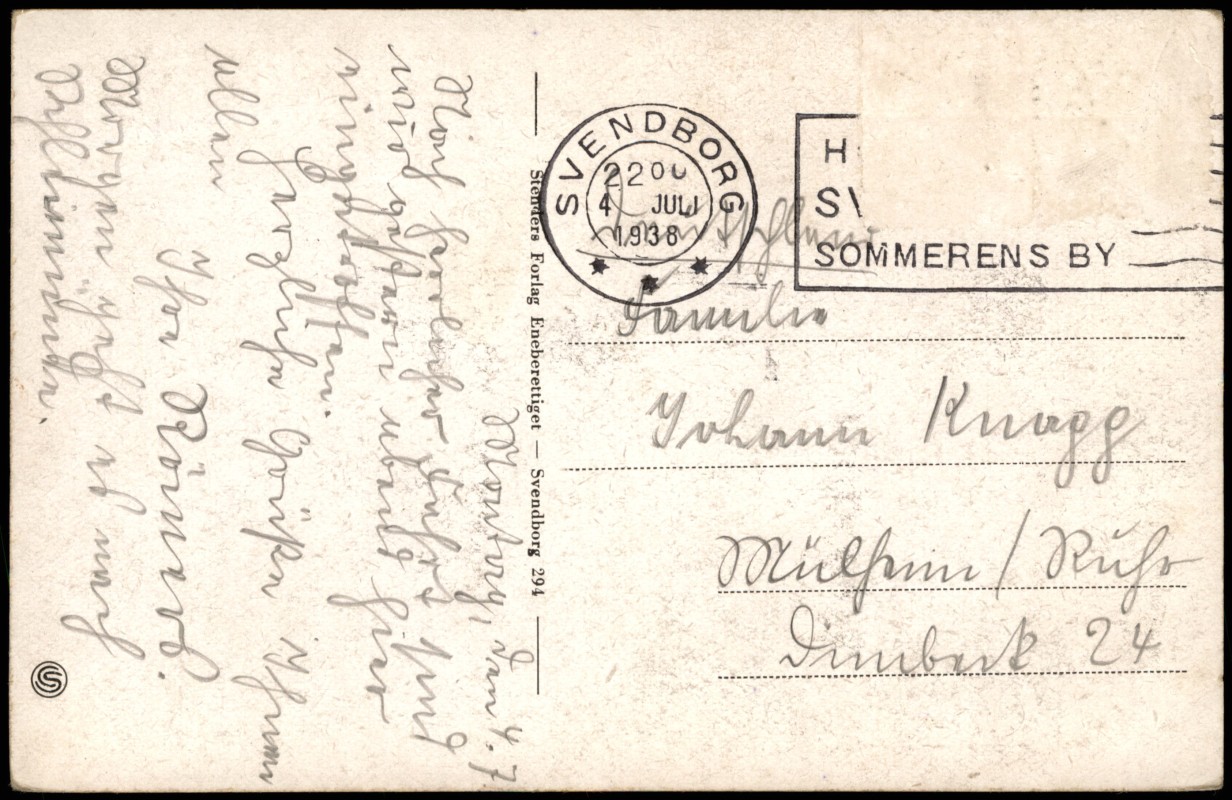 Montag, den 4.7
Nach herrlicher Fahrt sind
wir gestern abend hier
eingetroffen.
Herzliche Grüße Ihnen
allen
Ihre Römers.
Morgen geht es nach
Stenders Forlag Eneberettiget — Svendborg 294
SVENDBORG
2200
4 JULI
1938
H
SV
SOMMERENS BY
Deutschland
Familie
Johann Knapp
Mülheim / Ruhr
Dimbeck 24